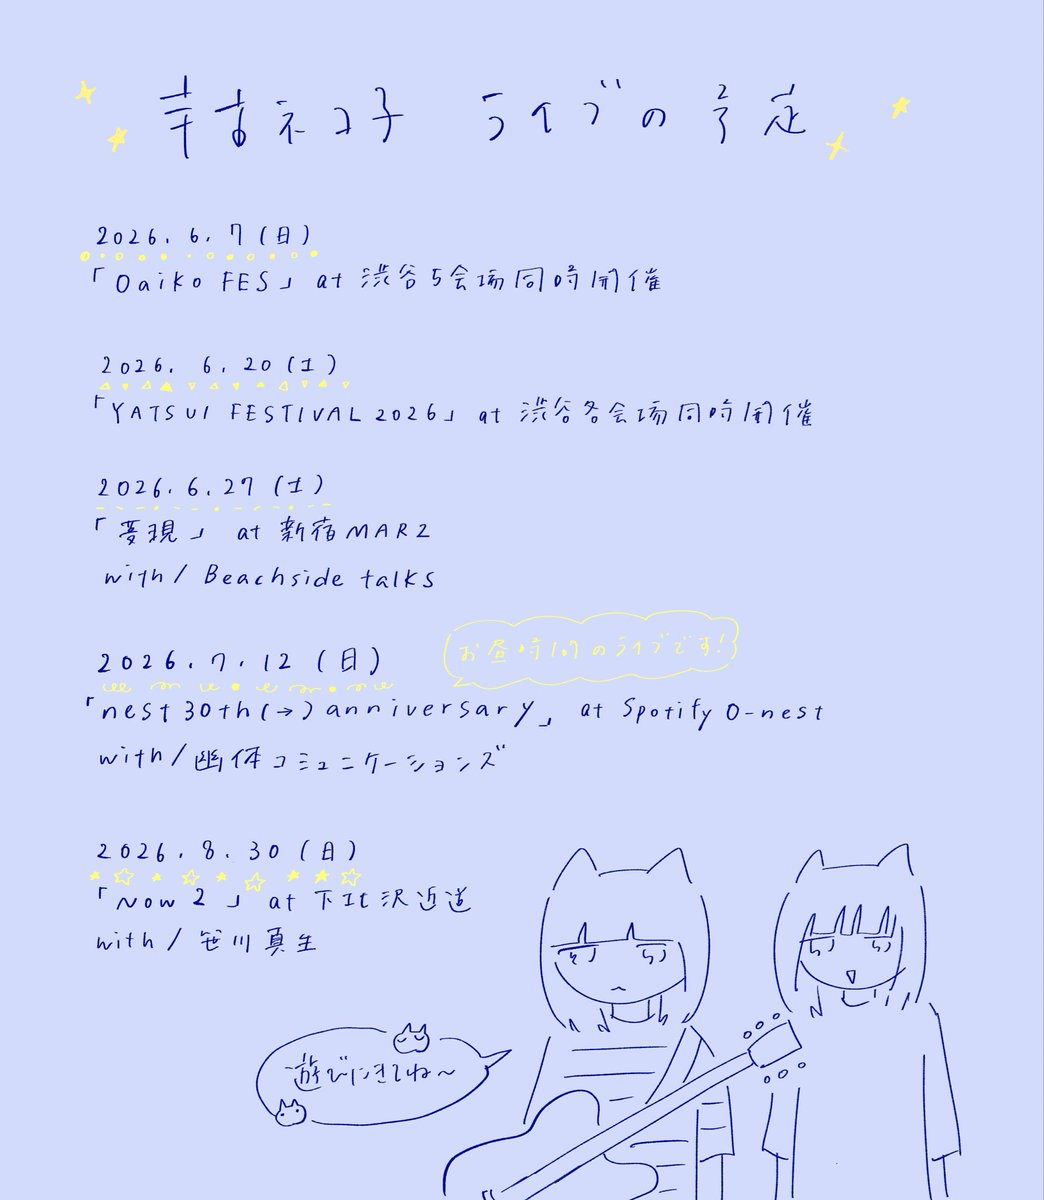 幸吉ネコ子 ライブの予定
2026.6.7(日)
「Oaiko FES」 at 渋谷5会場同時開催
2026.6.20(土)
「YATSUI FESTIVAL 2026」 at 渋谷各会場同時開催
2026.6.27(土)
「夢現」 at 新宿MARZ
with/ Beachside talks
2026.7.12(日)
お昼時間のライブです!
「nest 30th(→)anniversary」 at Spotify O-nest
with/幽体コミュニケーションズ
2026.8.30(日)
「Now 2」 at 下北沢近道
with/ 笹川真生
遊びにきてね〜